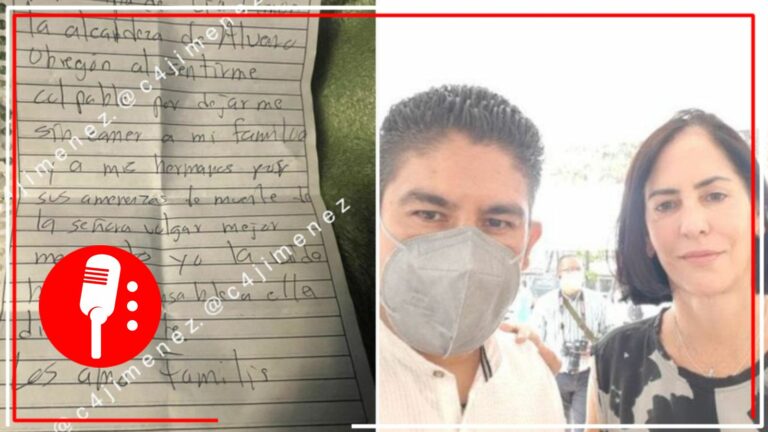 la alcaldeza de Alvaro
Obregón al sentirme
culpable por dejarme
sin comer a mi familia
y a mis hermanos por
sus amenenzas de muerte de
la señora vulgar mejor
me yo la
ella
Los amo Familia
@c4jimenez.
@c4jimenez.
@c4jimenez
@c4jimenez.
@c4jimenez